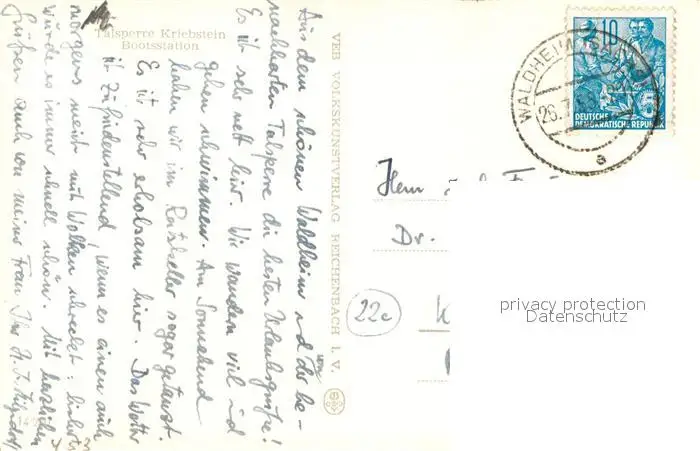 Talsperre Kriebstein
Bootsstation
Aus dem schönen Waldheim und der be-
nachbarten Talsperre die besten Urlaubsgrüße!
Es ist sehr nett hier. Wir wandern viel und
gehen schwimmen. Am Sonnabend
haben wir im Ratskeller sogar getanzt.
Es ist sehr erholsam hier. Das Wetter
ist zufriedenstellend, wenn es einen auch
morgens meist mit Wolken schreckt; bisher
wurde es immer schnell schön. Mit herzlichen
Grüßen auch von meiner Frau Ihr
VEB VOLKSKUNSTVERLAG REICHENBACH I. V.
WALDHEIM (SACHS)
26.7.
a
10
5
DEUTSCHE
DEMOKRATISCHE REPUBLIK
Herrn
Dr.
22c
K
privacy protection
Datenschutz